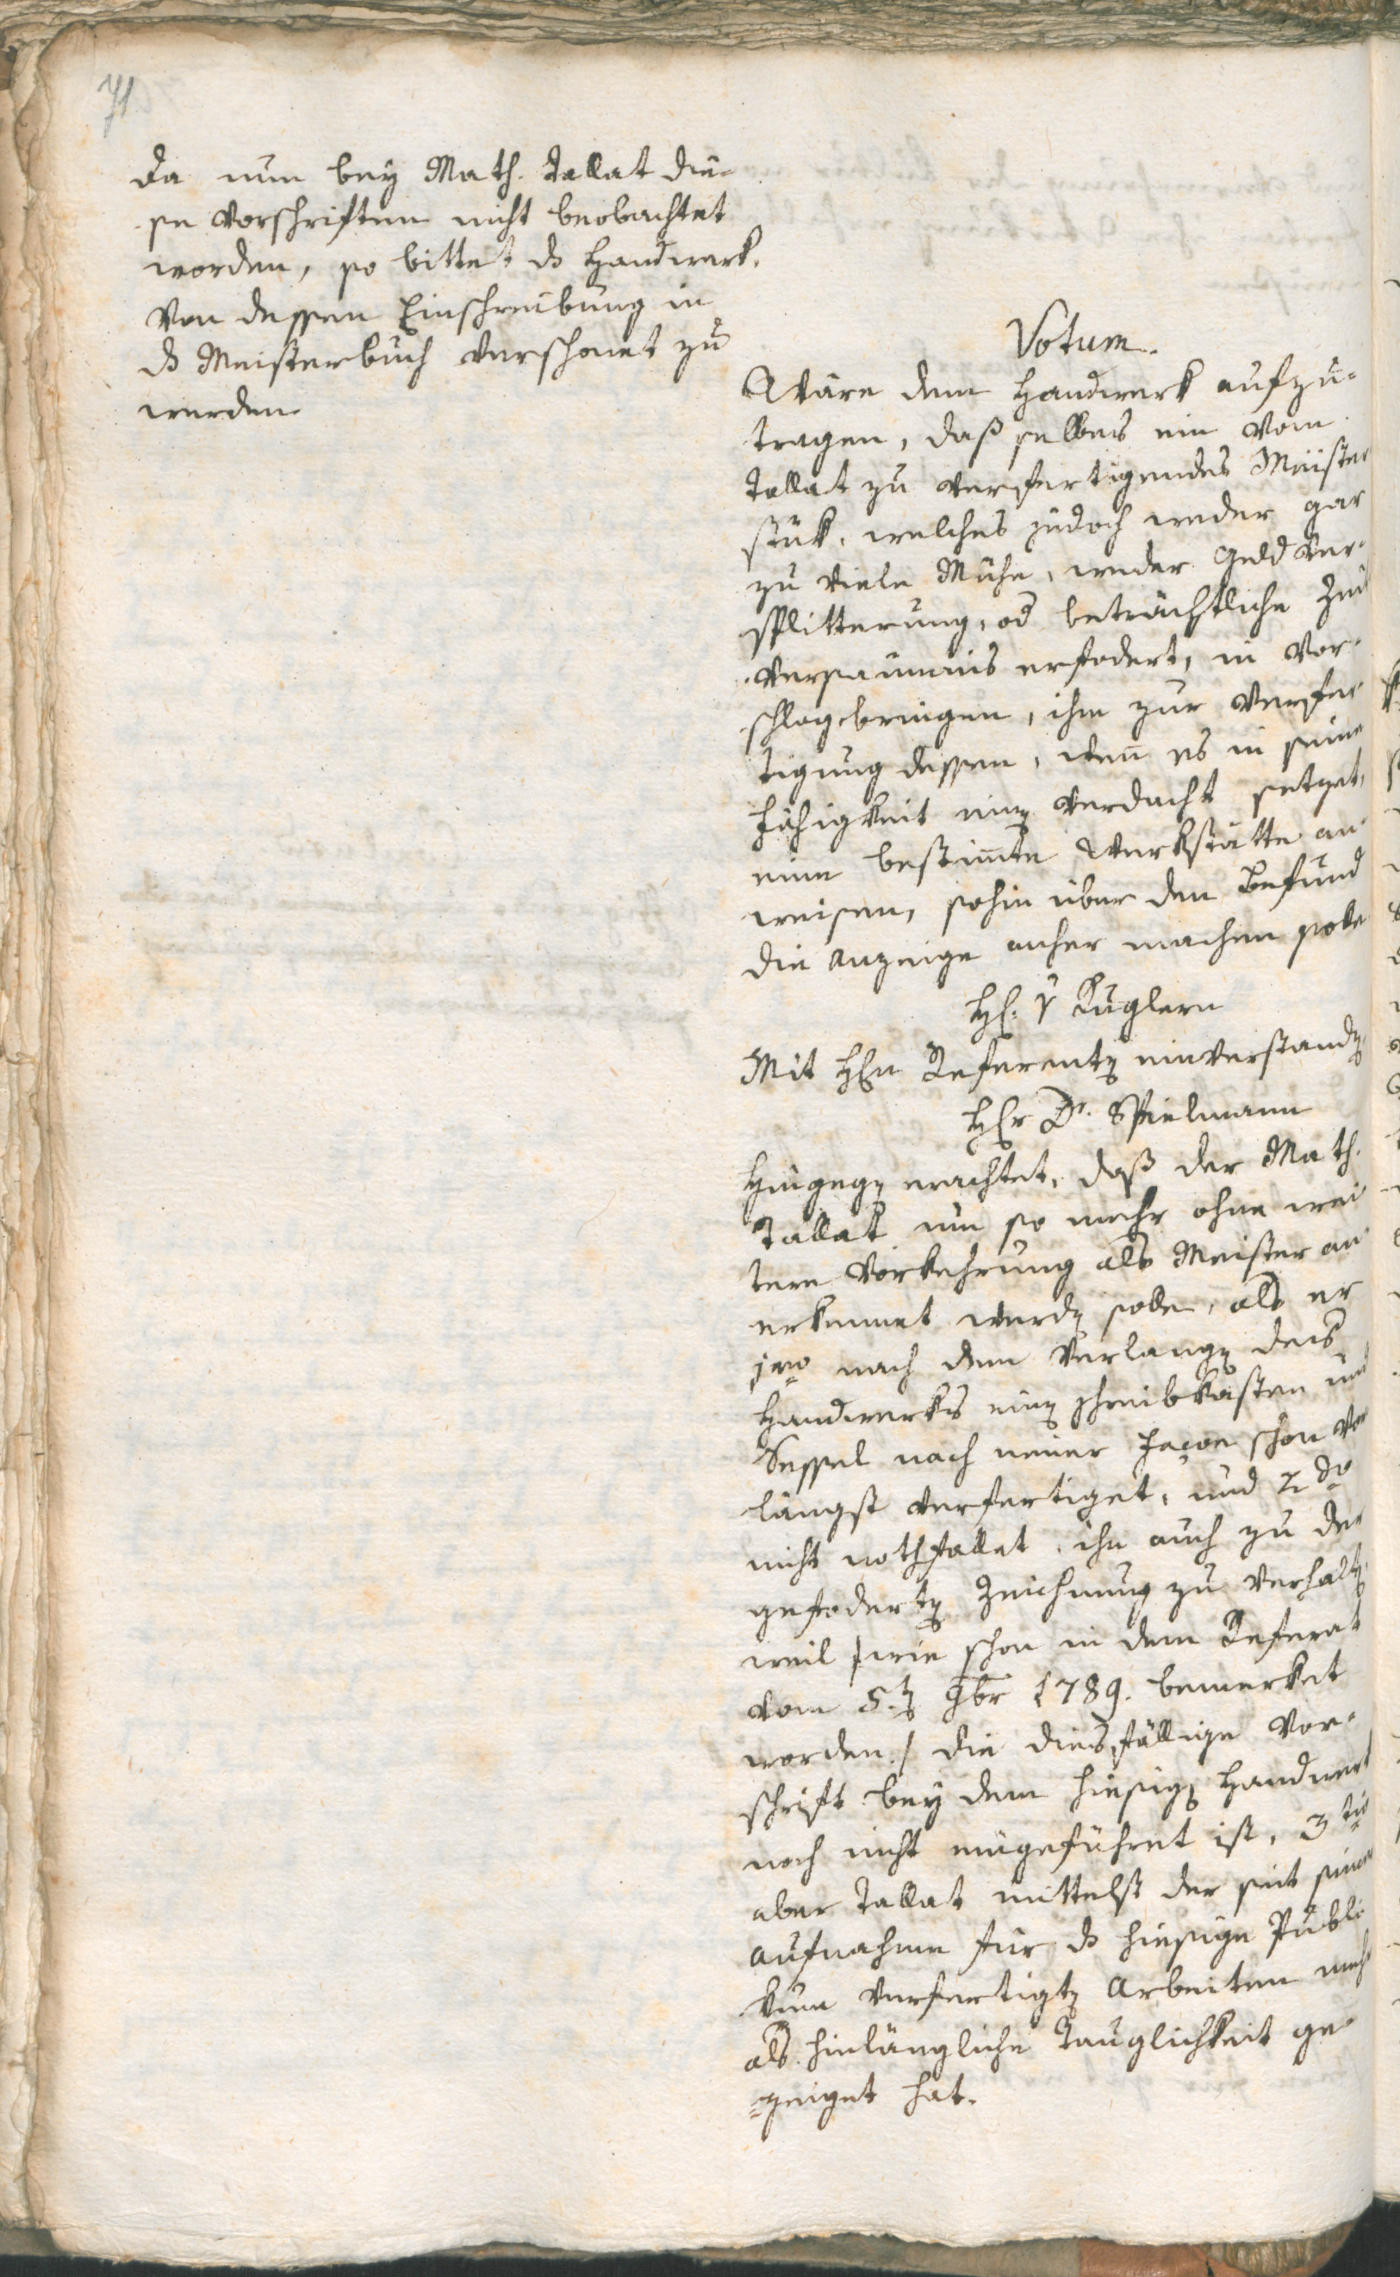 71.
Da nun bey Math. Tallat die-
se Vorschriften nicht beobachtet
worden, so bittet ds Handwerk,
von dessen Einschreibung in
ds Meisterbuch verschonet zu
werden.
Votum.
Wäre dem Handwerk aufzu-
tragen, daß selbes ein vom
Tallat zu verfertigendes Meister
stük, welches jedoch weder gar
zu viele Mühe, weder Geld Ver-
splitterung, od beträchtliche Zeit
versaumnis erfodert, in Vor-
schlag bringen, ihm zur Verfer
tigung dessen, wen es in seine
Fähigkeit ein Verdacht setzet,
eine bestimte Werkstätte an-
weisen, sohin über den Befund
die Anzeige anher machen solle
H. v Kuglern
Mit Hn Referenten einverstanden
Hr Dr. Spielmann
Hingegen erachtet, daß der Math.
Tallat um so mehr ohne wei
tere Vorkehrung als Meister an
erkennet werden solle, als er
1mo nach dem Verlangen des
Handwerks einen schreibkasten und
Sessel nach neuer Façon schon vor
längst verfertiget, und 2do
nicht nothfallet, ihn auch zu der
gefoderten Zeichnung zu verhalten,
weil /: wie schon in dem Referat
vom 5.ten 9br 1789. bemerket
worden :/ die diesfällige Vor-
schrift bey dem hiesigen Handwerk
noch nicht eingeführet ist, 3tio
aber Tallat mittelst der seit seiner
Aufnahme für ds hiesige Publi
kum verfertigten Arbeiten mehr
als hinlängliche Tauglichkeit ge-
=zeiget hat.